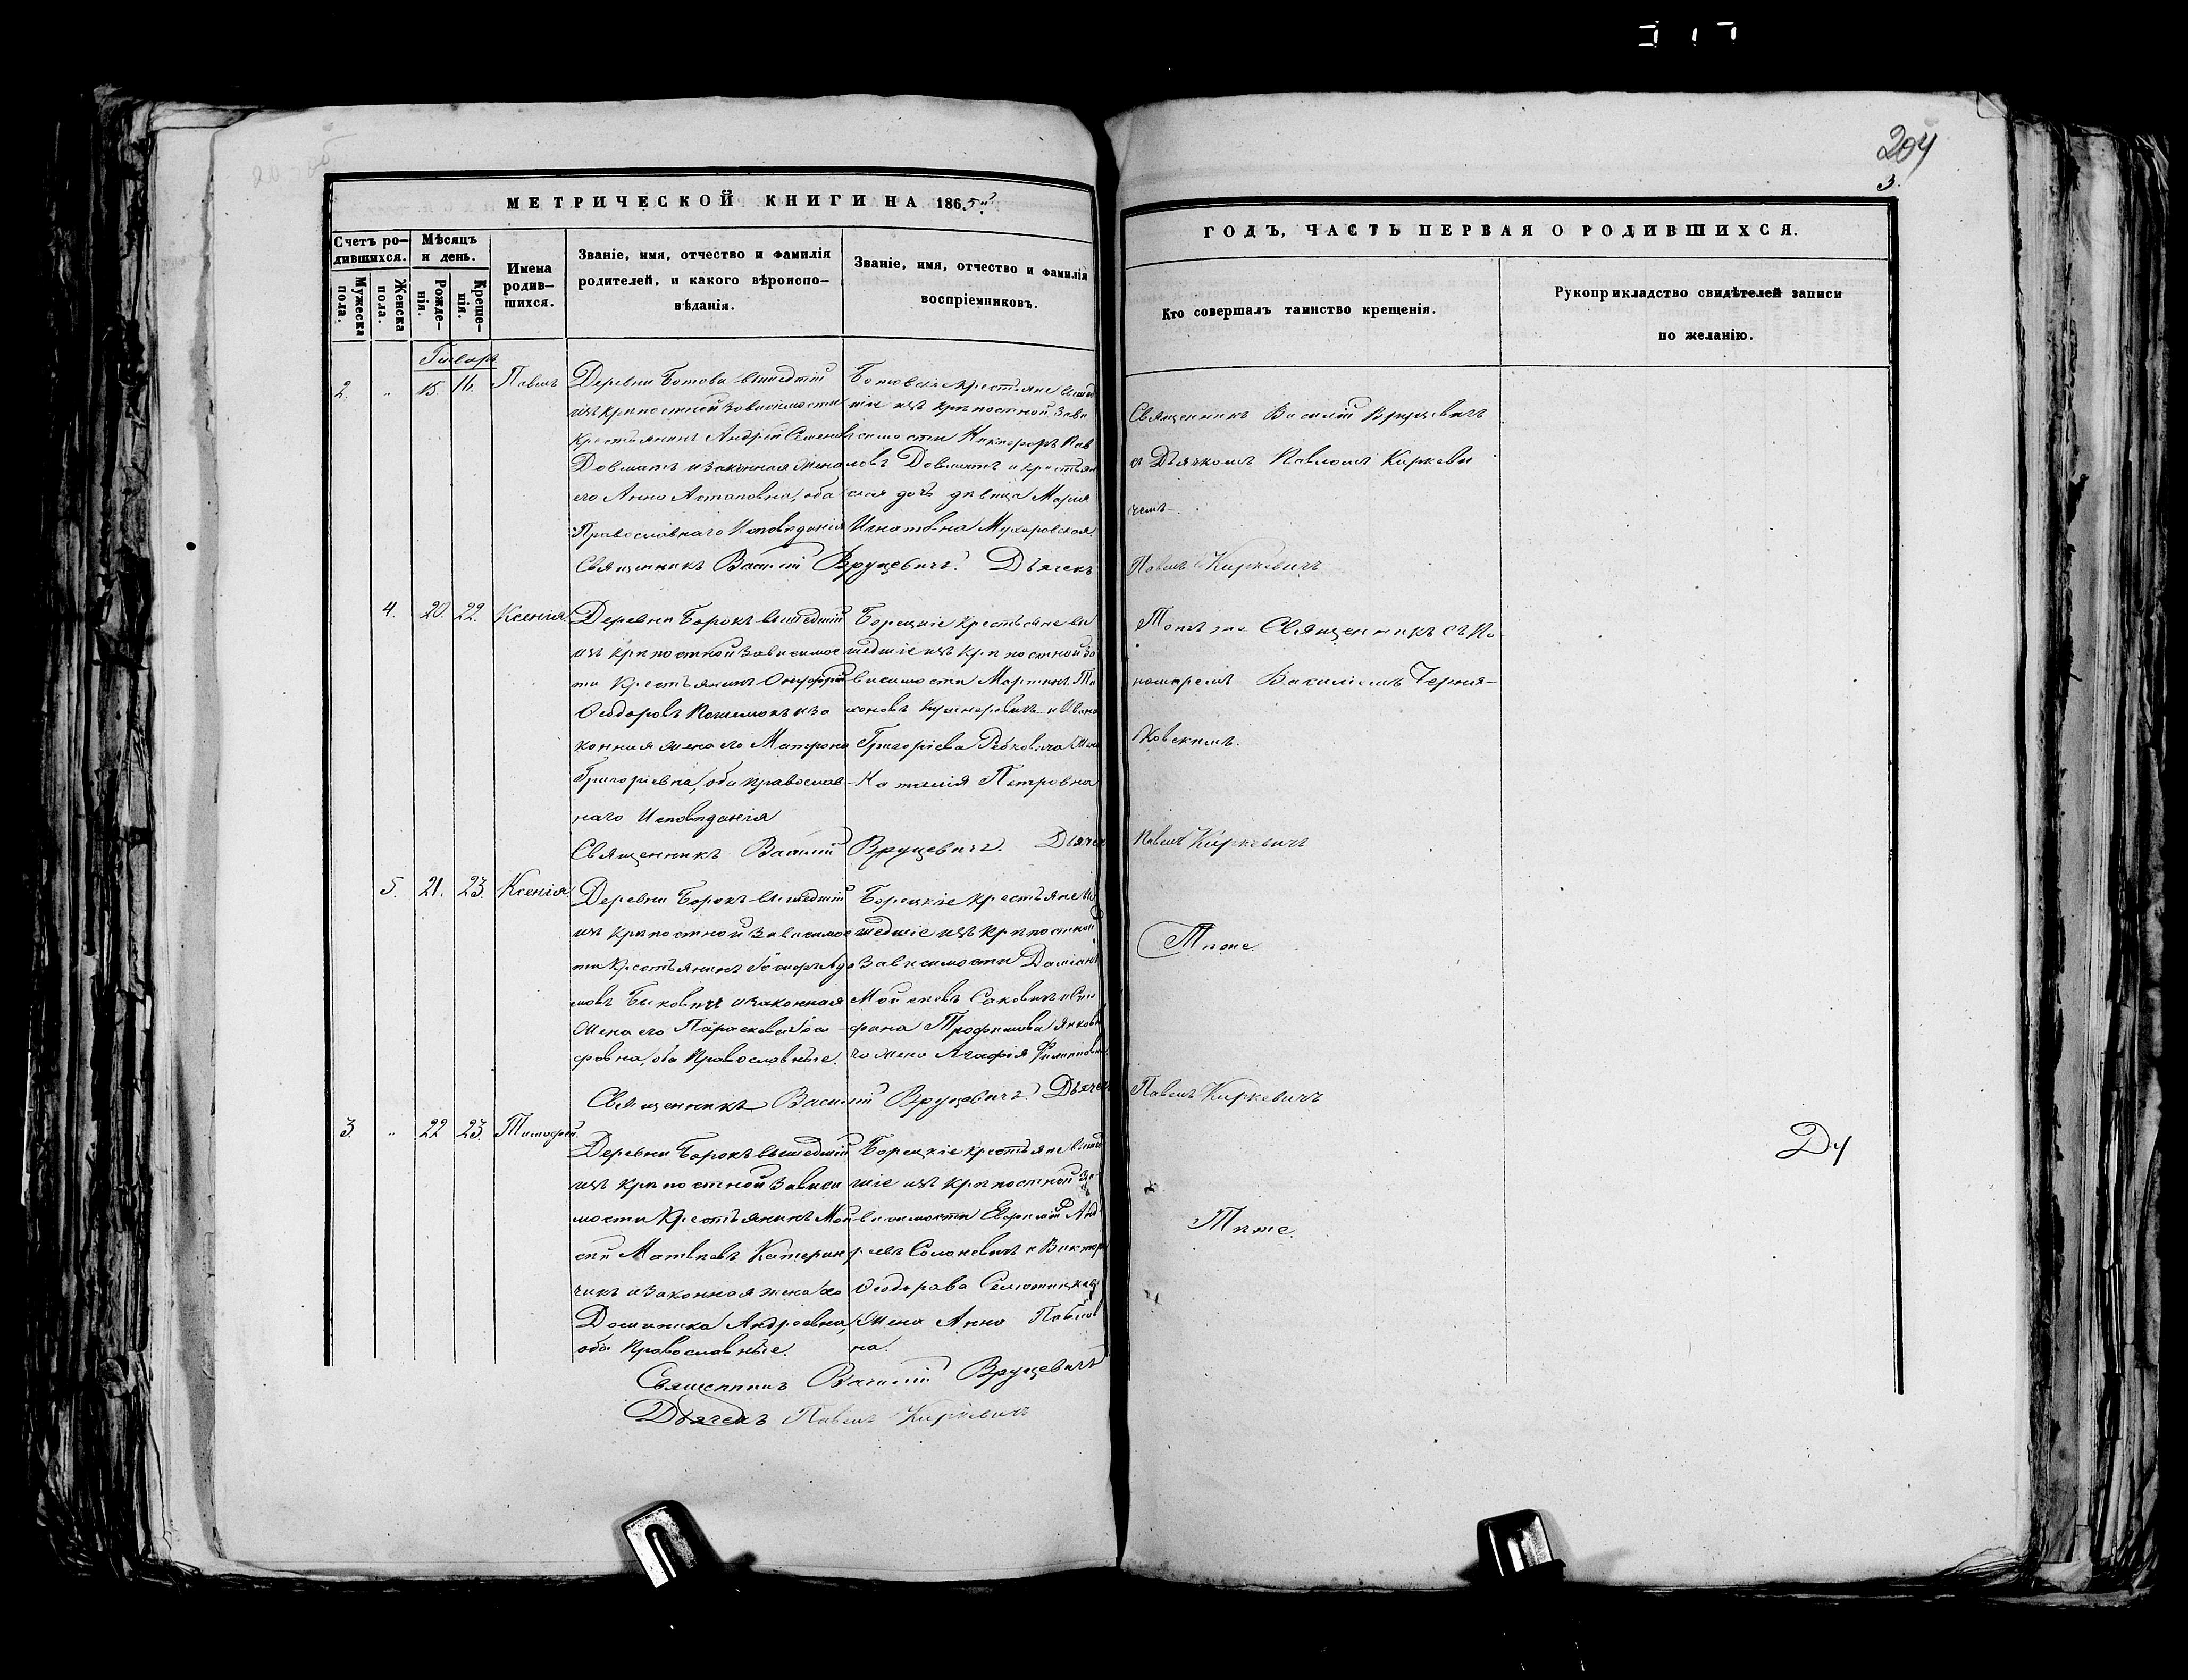 204
3.
МЕТРИЧЕСКОЙ КНИГИ НА 1865й
ГОДЪ, ЧАСТЬ ПЕРВАЯ О РОДИВШИХСЯ.
Счетъ ро-
дившихся.
Мужеска
пола.
Женска
пола.
Мѣсяцъ
и день.
Рожде-
нія.
Креще-
нія.
Имена
родив-
шихся.
Званіе, имя, отчество и фамилія
родителей, и какого вѣроиспо-
вѣданія.
Званіе, имя, отчество и фамилія
воспріемниковъ.
Кто совершалъ таинство крещенія.
Рукоприкладство свидѣтелей записи
по желанію.
Генварь
2. " 15. 16. Павелъ
Деревни Ботова вышедшій
изъ крѣпостной зависимости
Крестьянинъ Андрей Семеновъ
Довматъ и законная жена
его Анна Астаповна, оба
Православнаго Исповѣданія
Ботовскіе крестьяне вышед
шіе изъ крѣпостной зави
симости Никифоръ Пав
ловъ Довматъ и крестьян
ская дочь дѣвица Марія
Игнатовна Мухоровская.
Священникъ Василій Вруцевичъ
съ Дьячкомъ Павломъ Киркеви
чемъ.
Священникъ Василій Вруцевичъ. Дьячекъ Павелъ Киркевичъ
4. 20. 22. Ксенія
Деревни Борокъ вышедшій
изъ крѣпостной зависимос
ти Крестьянинъ Онуфрій
Ѳеодоровъ и за
конная жена его Матрона
Григоріевна, оба православ-
наго Исповѣданія
Борецкіе крестьяне вы
шедшіе изъ крѣпостной за
висимости Мартинъ Ти
хоновъ Кушнеревичъ и Ивана
Григоріева жена
Наталія Петровна
Тотъ же Священникъ съ По-
номаремъ Василіемъ Черня-
ковскимъ.
Священникъ Василій Вруцевичъ. Дьячек Павелъ Киркевичъ
5. 21. 23. Ксенія.
Деревни Борокъ вышедшій
изъ крѣпостной зависимос
ти Крестьянинъ
мовъ Быковичъ и законная
жена его Параскева
фовна, оба Православные.
Борецкіе крестьяне вы
шедшіе изъ крѣпостной
зависимости Даміанъ
Мойсеевъ Саковичъ и
фана Трофимова Янкови
ча жена Агафія Филиповна.
Тѣже.
Священникъ Василій Вруцевичъ. Дьячек Павелъ Киркевичъ
3. " 22 23. Тимофей.
Деревни Борокъ вышедшій
изъ крѣпостной зависи
мости Крестьянинъ Мой
сей Матвѣевъ Катерин
чикъ и законная жена его
Доминика Андреевна,
оба Православные.
Борецкіе крестьяне вышед
шіе изъ крѣпостной за-
висимости Евфимій Анд
реевъ Солоневичъ и Виктора
Ѳеодорова
жена Анна Павлов
на.
Тѣже.
Священникъ Василій Вруцевичъ
Дьячекъ Павелъ Киркевичъ